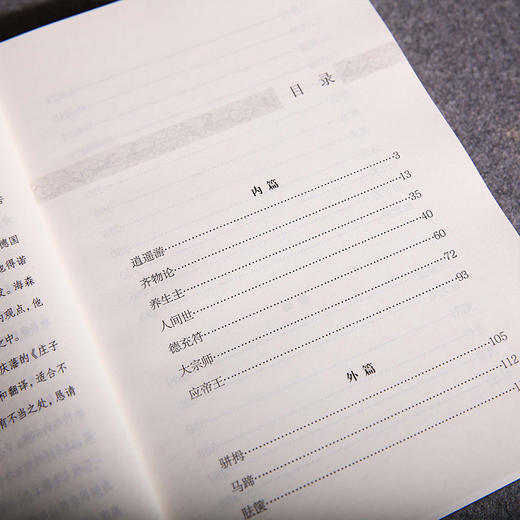 德国
也得诺
。海森
的观点，他
之中。
庆藩的《庄子
和翻译，适合不
有不当之处，恳请
目 录
内 篇
逍遥游 3
齐物论 13
养生主 35
人间世 40
德充符 60
大宗师 72
应帝王 93
外 篇
骈拇 105
马蹄 112
胠箧 1